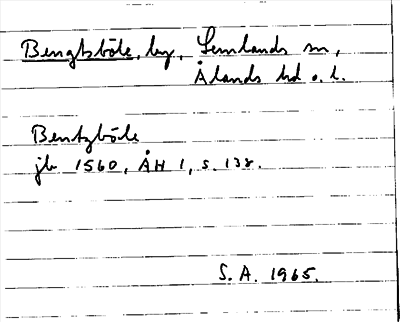 Bengtsböle, by, Lemlands sn,
Ålands hd o. l.
Bentzböle
jb 1560, ÅH 1, s. 138.
S. A. 1965.